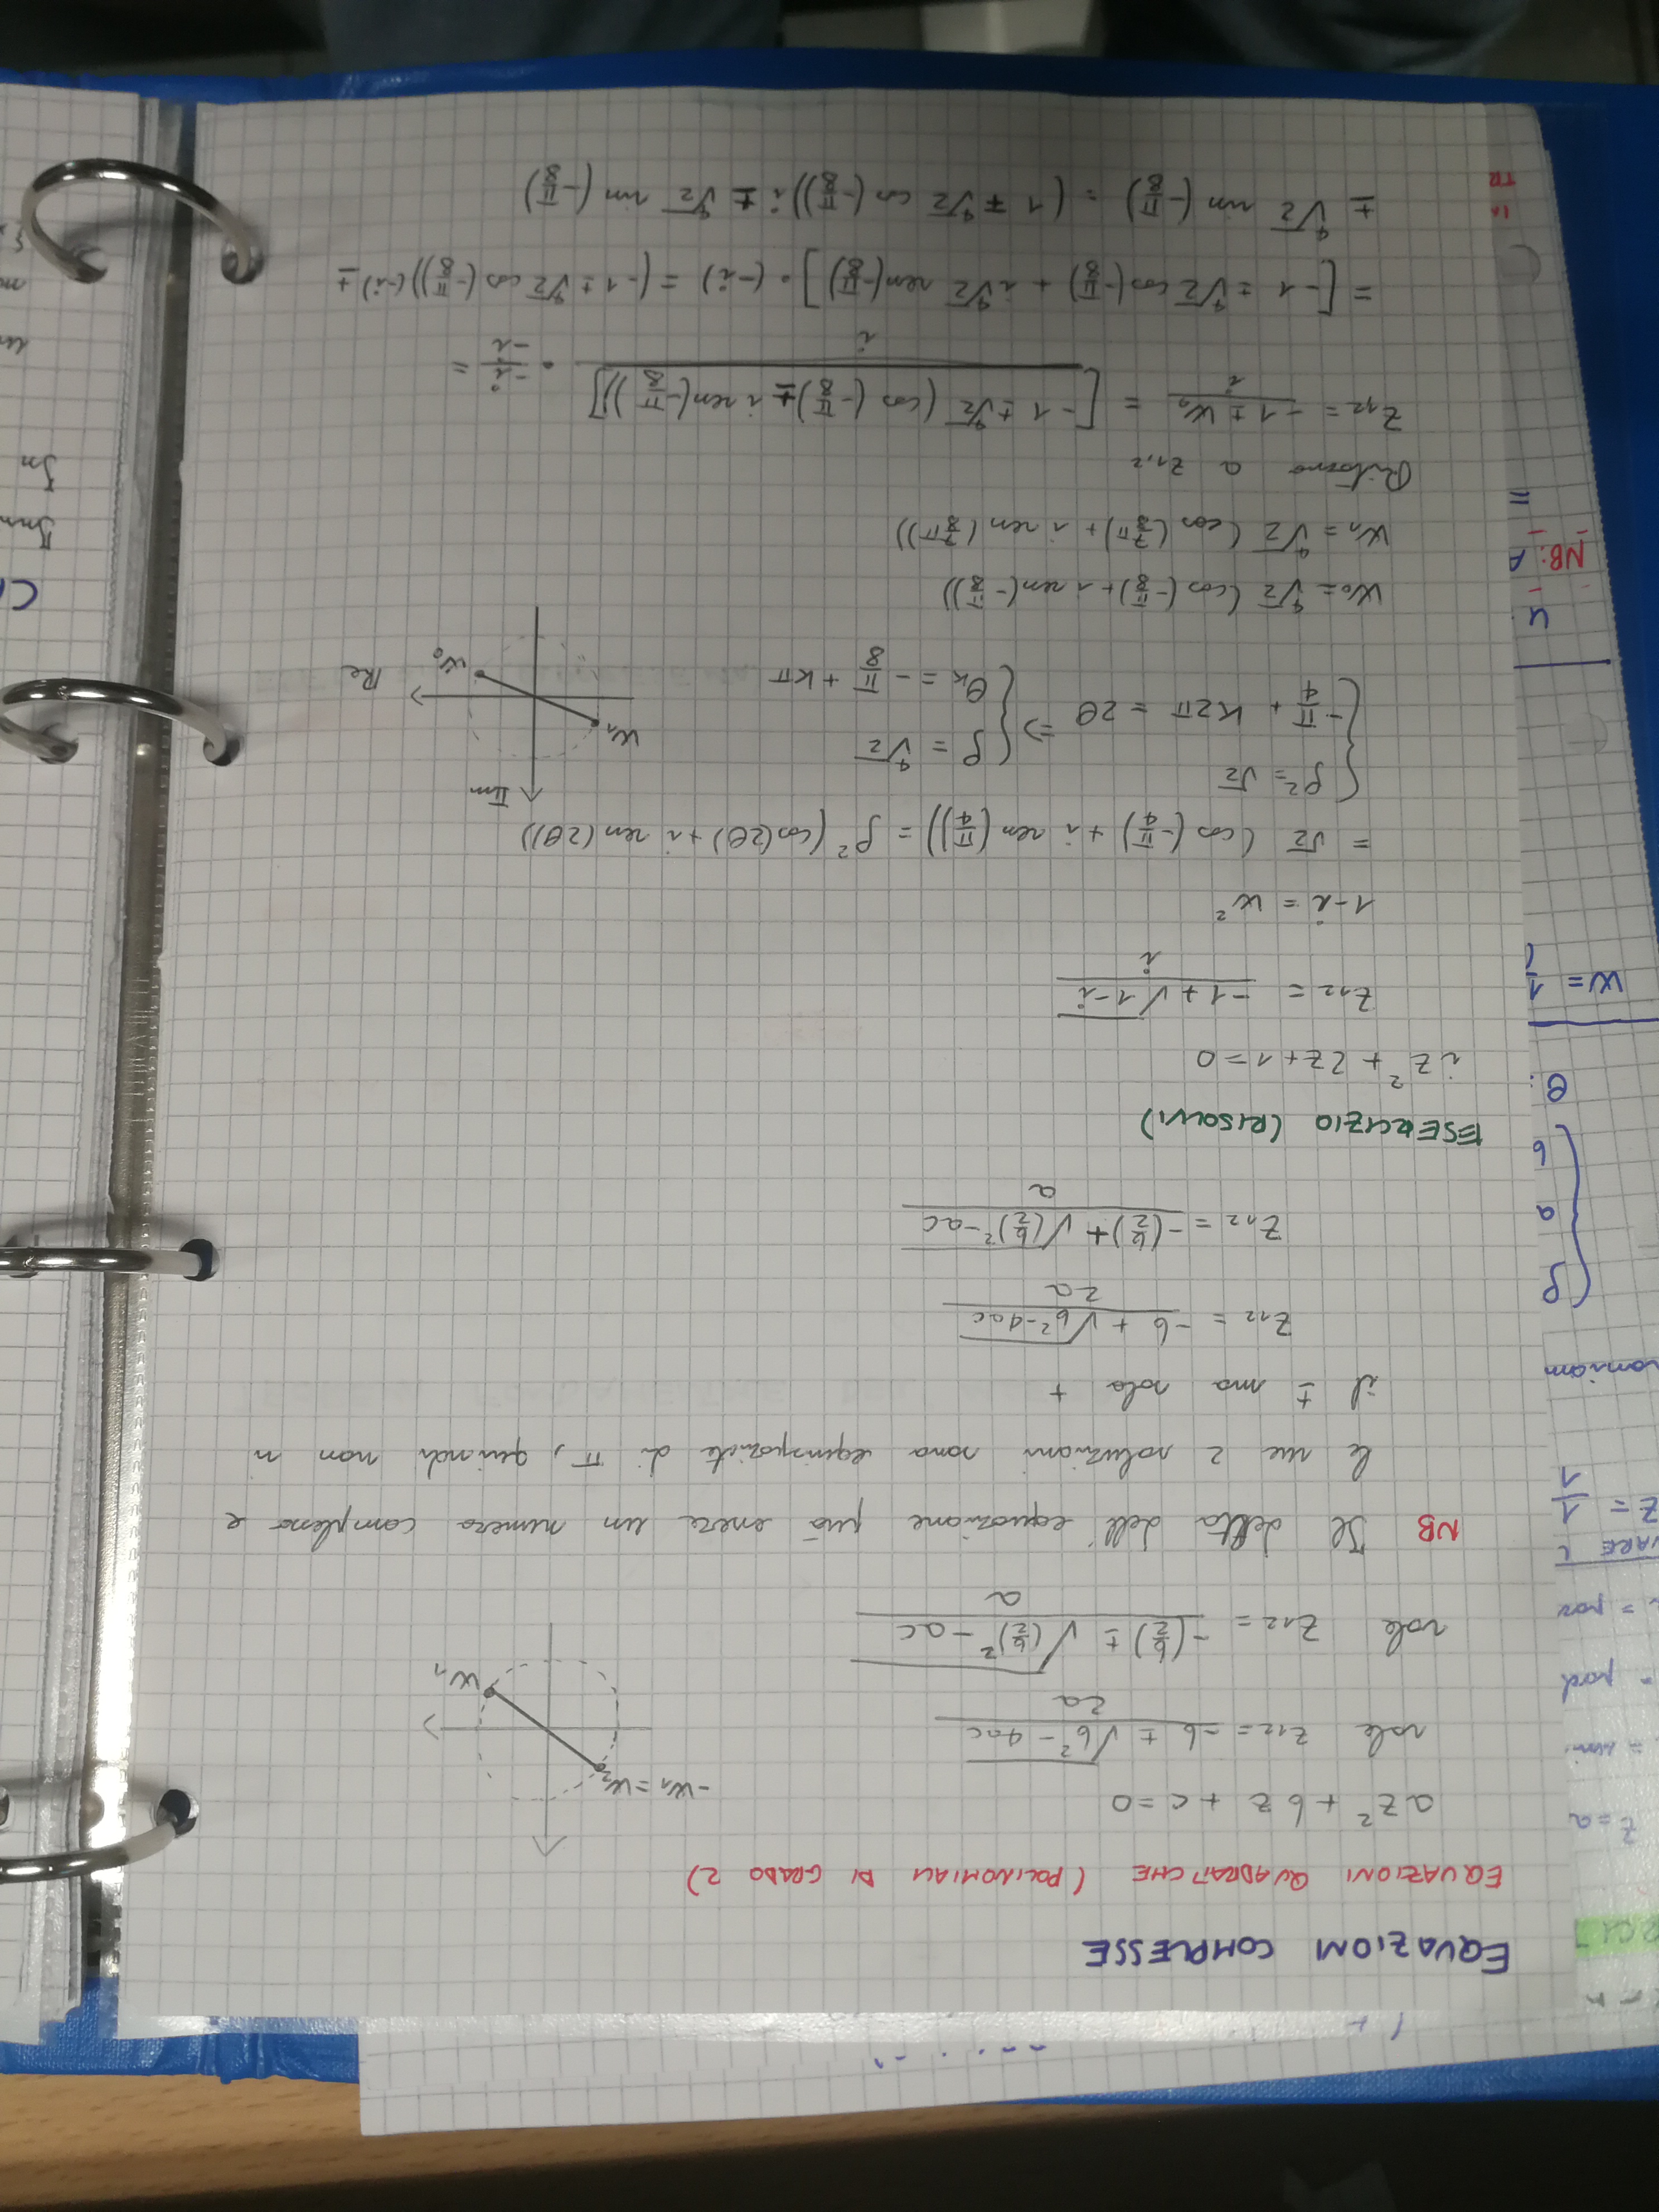 EQUAZIONI COMPLESSE
EQUAZIONI QUADRATICHE (POLINOMIALI DI GRADO 2)
az² + bz + c = 0
vale z₁₂ = (-b ± √(b² - 4ac)) / 2a
-w₁ = w₂
w₁
vale z₁₂ = (-(b/2) ± √((b/2)² - ac)) / a
NB Il delta dell'equazione può essere un numero complesso e
le sue 2 soluzioni sono equispaziate di π, quindi non si
il ± ma solo +
z₁₂ = (-b + √(b² - 4ac)) / 2a
z₁₂ = (-(b/2) + √((b/2)² - ac)) / a
ESERCIZIO (RISOLVI)
iz² + 2z + 1 = 0
z₁₂ = (-1 + √(1-i)) / i
1-i = w²
= √2 (cos(-π/4) + i sen(π/4)) = ρ² (cos(2θ) + i sen(2θ))
{ ρ² = √2 ; -π/4 + k2π = 2θ ⇒ { ρ = ⁴√2 ; θₖ = -π/8 + kπ
Im
w₁
Re
w₀
w₀ = ⁴√2 (cos(-π/8) + i sen(-π/8))
w₁ = ⁴√2 (cos(7/8 π) + i sen(7/8 π))
Ritorno a z₁,₂
z₁,₂ = (-1 ± w₁) / i = [-1 ± ⁴√2 (cos(-π/8) ± i sen(-π/8))] / i · -i/-i =
= [-1 ± ⁴√2 cos(-π/8) + i ⁴√2 sen(-π/8)] · (-i) = (-1 ± ⁴√2 cos(-π/8))(-i) ±
± ⁴√2 sin(-π/8) = (1 ∓ ⁴√2 cos(-π/8)) i ± ⁴√2 sin(-π/8)
z = a
VARE
z = 1/1
{ ρ
a
b
θ:
w = 1
u
NB: A
=